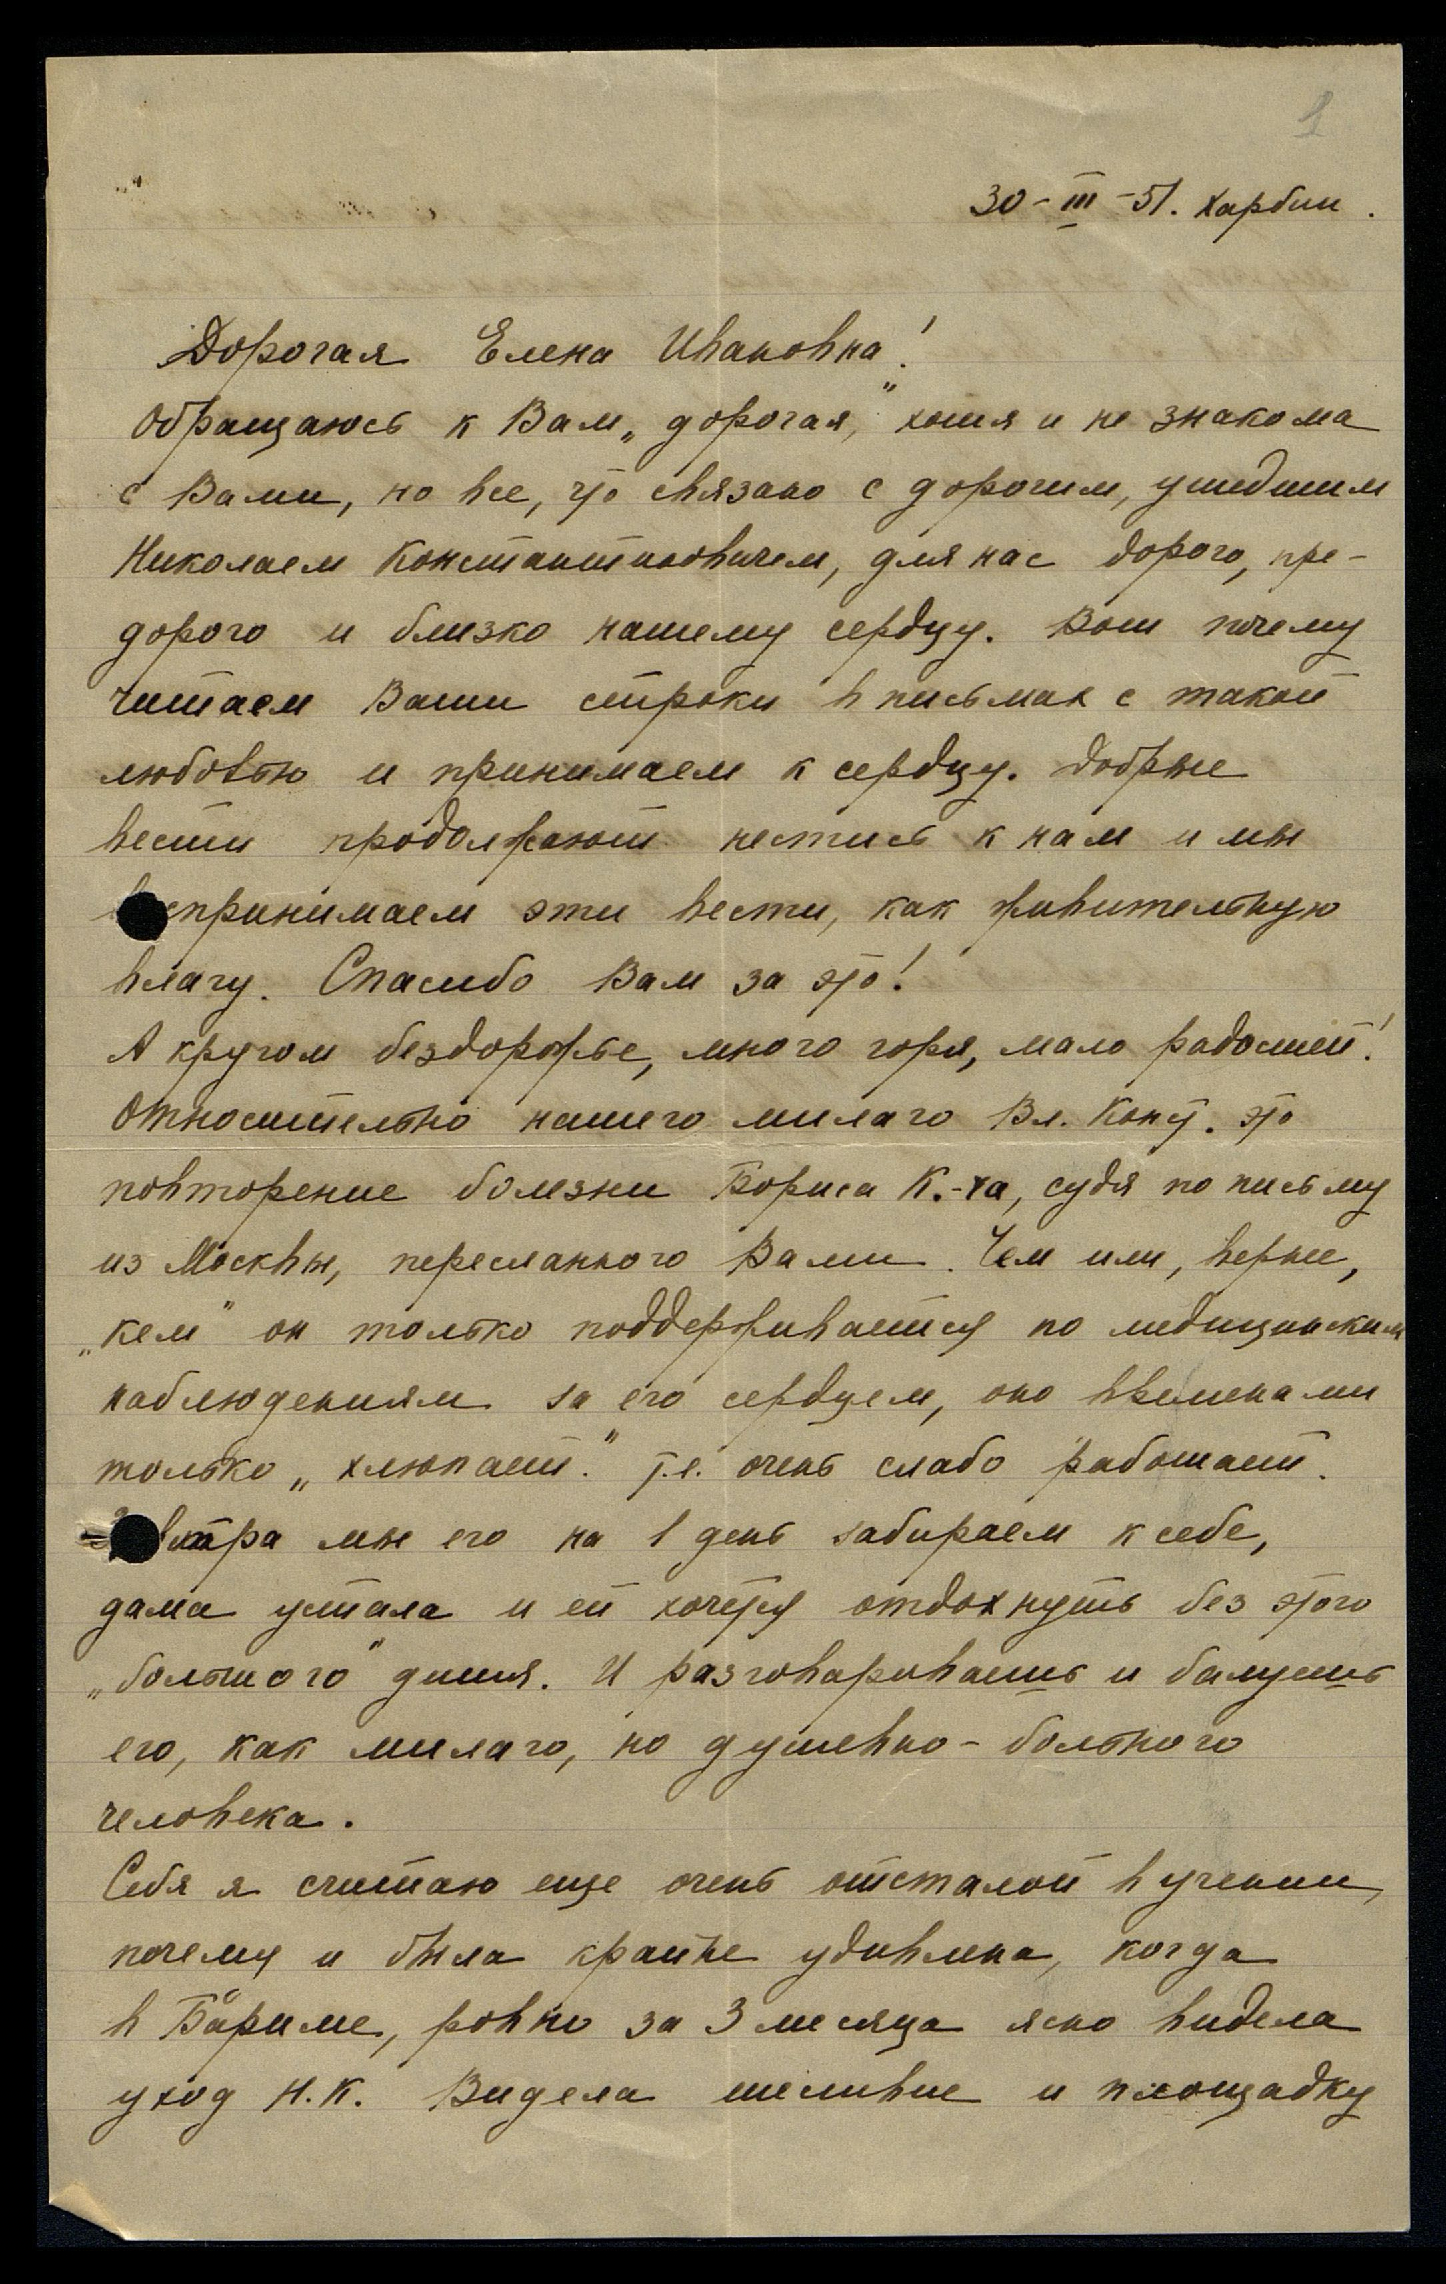 1
30-III-51. Харбин.
Дорогая Елена Ивановна!
Обращаюсь к Вам „дорогая", хотя и не знакома
с Вами, но все, что связано с дорогим, ушедшим
Николаем Константиновичем, для нас дорого, пре-
дорого и близко нашему сердцу. Вот почему
читаем Ваши строки в письмах с такой
любовью и принимаем к сердцу. Добрые
вести продолжают нестись к нам и мы
воспринимаем эти вести, как живительную
влагу. Спасибо Вам за это!
А кругом бездорожье, много горя, мало радостей!
Относительно нашего милаго Вл. Конст. это
повторение болезни Бориса К.-ча, судя по письму
из Москвы, пересланного Вами. Чем или, вернее,
„кем" он только поддерживается по медицинским
наблюдениям за его сердцем, оно временами
только „хлюпает." т.е. очень слабо работает.
Завтра мы его на 1 день забираем к себе,
дама устала и ей хочется отдохнуть без этого
„большого" дитя. И разговариваешь и балуешь
его, как милаго, но душевно-больного
человека.
Себя я считаю еще очень отсталой в учении,
почему и была крайне удивлена, когда
в Бариме, ровно за 3 месяца ясно видела
уход Н.К. Видела шествие и площадку